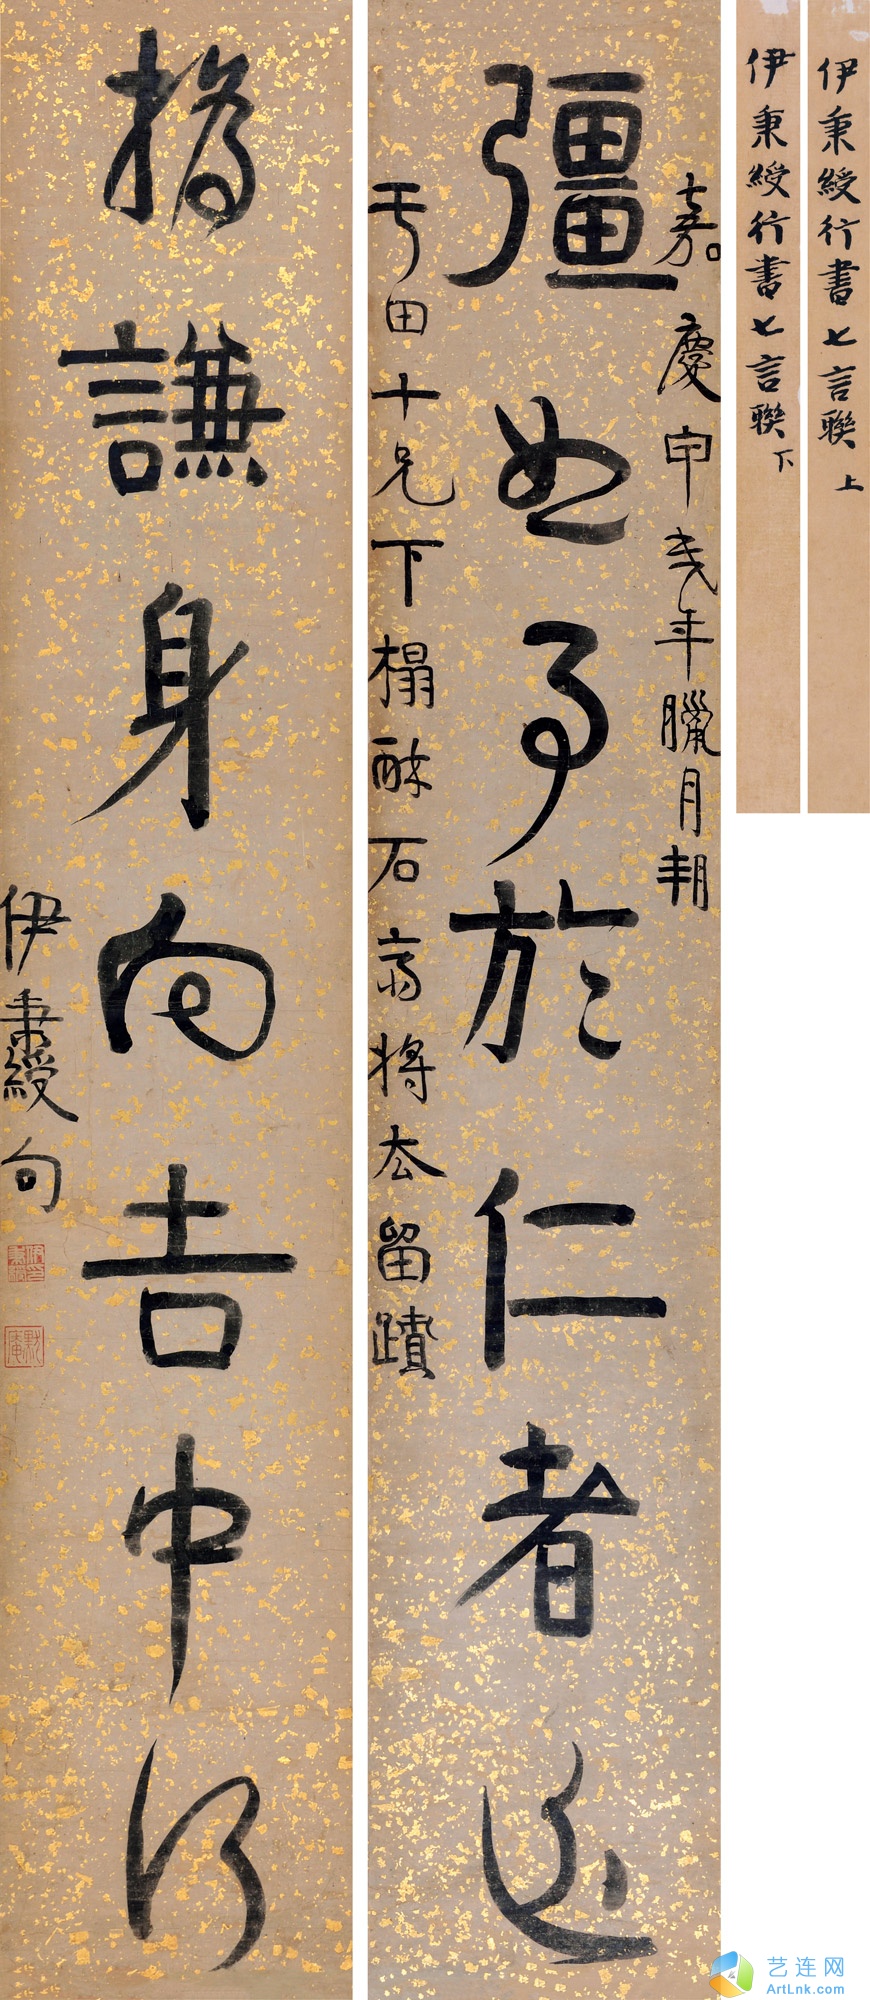 伊秉綬行書七言聯 上
伊秉綬行書七言聯 下
嘉慶甲戌年臘月朔
彊恕事於仁者近
田十兄下榻酥石齋將去留蹟
撝謙身向吉中行
伊秉綬句
默庵